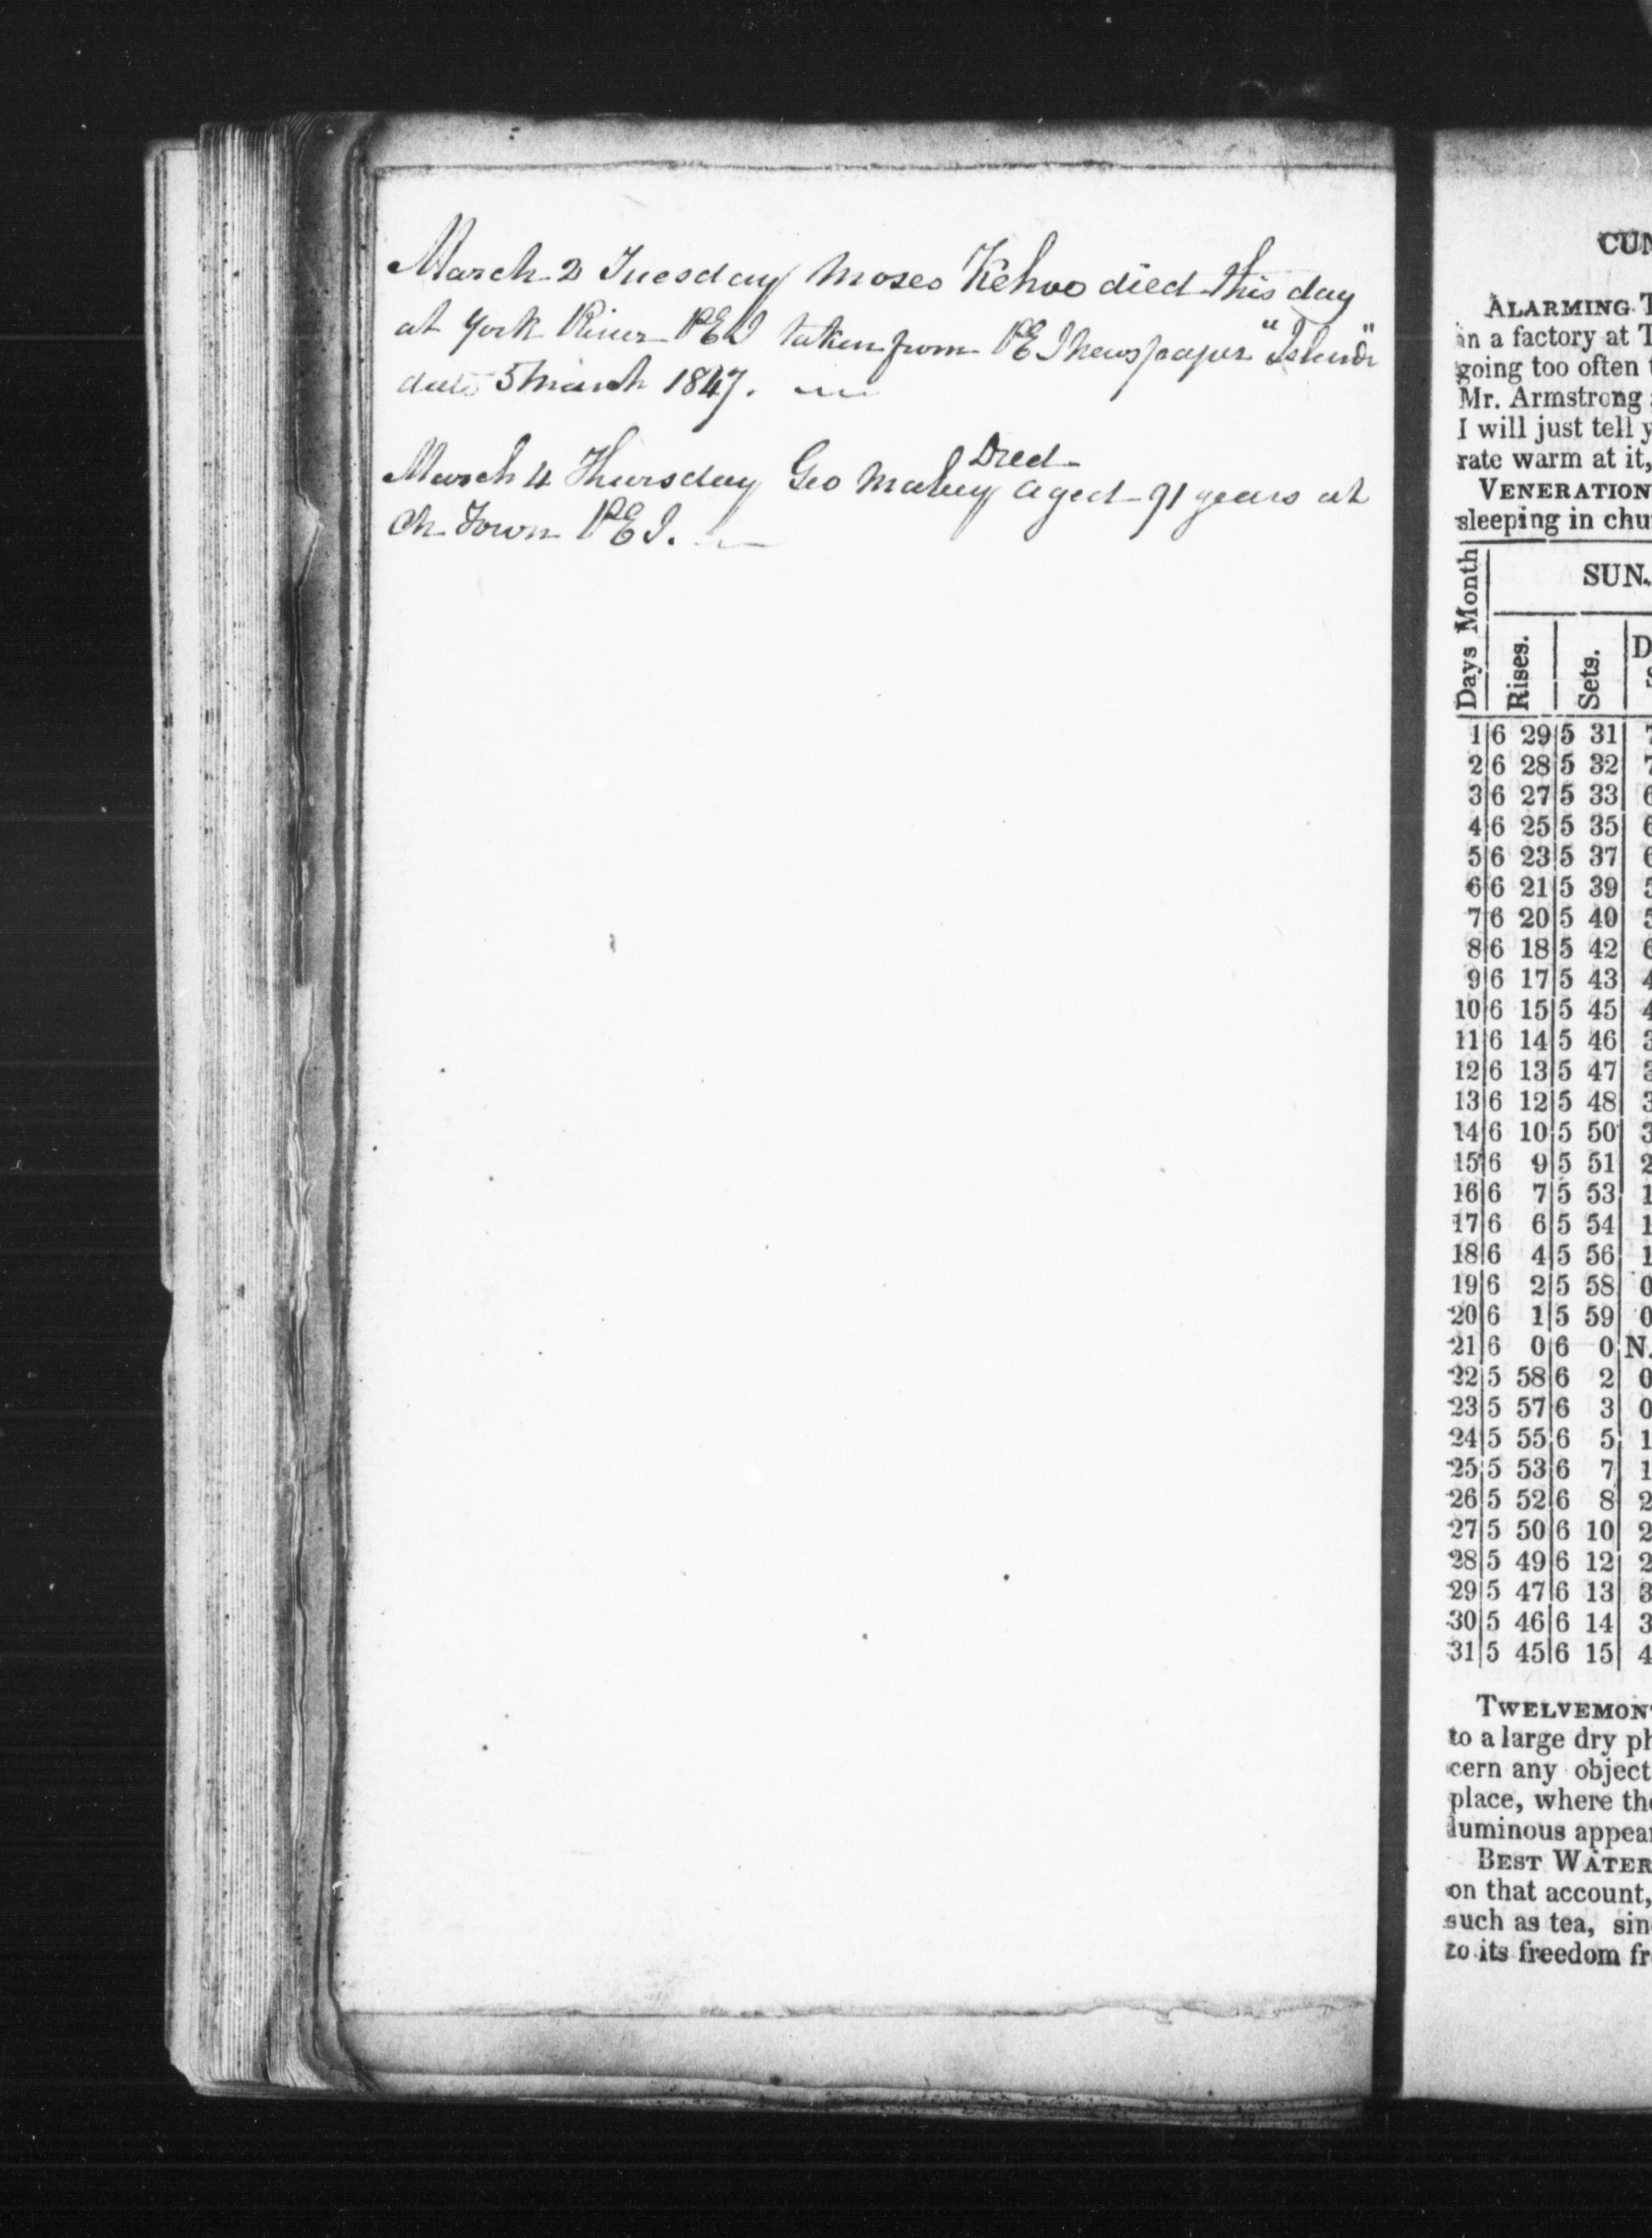 March 2 Tuesday Moses Kehoo died this day
at York River PEI taken from PEI Newspaper "Island"
date 5 March 1847.
Died
March 4 Thursday Geo Mabey aged 91 years at
Ch Town PEI.
CUM
ALARMING T
in a factory at T
going too often t
Mr. Armstrong
I will just tell y
rate warm at it,
VENERATION
sleeping in chu
Days Month
SUN.
Rises.
Sets.
D
1 6 29 5 31 7
2 6 28 5 32 7
3 6 27 5 33 6
4 6 25 5 35 6
5 6 23 5 37 6
6 6 21 5 39 5
7 6 20 5 40 5
8 6 18 5 42 6
9 6 17 5 43 4
10 6 15 5 45 4
11 6 14 5 46 3
12 6 13 5 47 3
13 6 12 5 48 3
14 6 10 5 50 3
15 6 9 5 51 2
16 6 7 5 53 1
17 6 6 5 54 1
18 6 4 5 56 1
19 6 2 5 58 0
20 6 1 5 59 0
21 6 0 6 0 N.
22 5 58 6 2 0
23 5 57 6 3 0
24 5 55 6 5 1
25 5 53 6 7 1
26 5 52 6 8 2
27 5 50 6 10 2
28 5 49 6 12 2
29 5 47 6 13 3
30 5 46 6 14 3
31 5 45 6 15 4
TWELVEMON
to a large dry ph
cern any object
place, where the
luminous appear
BEST WATER
on that account,
such as tea, sin
to its freedom fr